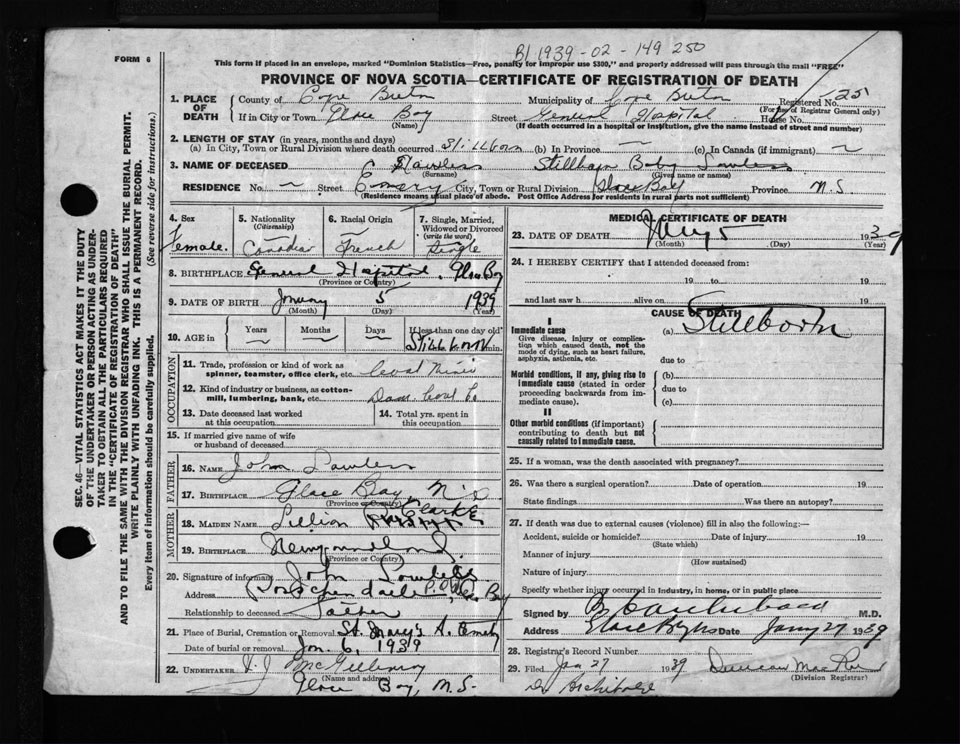 FORM 6
B1 1939-02-149250
This form if placed in an envelope, marked "Dominion Statistics—Free, penalty for improper use $300," and properly addressed will pass through the mail "FREE"
PROVINCE OF NOVA SCOTIA—CERTIFICATE OF REGISTRATION OF DEATH
1. PLACE OF DEATH
County of Cape Breton Municipality of Cape Breton Registered No. 25
(For use of Registrar General only)
If in City or Town Glace Bay Street General Hospital House No.
(Name) (If death occurred in a hospital or institution, give the name instead of street and number)
2. LENGTH OF STAY (in years, months and days)
(a) In City, Town or Rural Division where death occurred Stillborn (b) In Province — (c) In Canada (if immigrant) ~
3. NAME OF DECEASED Lawless Stillborn Baby Lawless
(Surname) (Given name or names)
RESIDENCE No. ~ Street Emery City, Town or Rural Division Glace Bay Province N.S.
(Residence means usual place of abode. Post Office Address for residents in rural parts not sufficient)
4. Sex
Female.
5. Nationality
(Citizenship)
Canadian
6. Racial Origin
French
7. Single, Married, Widowed or Divorced
(write the word)
Single
8. BIRTHPLACE General Hospital, Glace Bay
(Province or Country)
9. DATE OF BIRTH January 5 1939
(Month) (Day) (Year)
10. AGE in
Years Months Days If less than one day old
Stillborn min.
OCCUPATION
11. Trade, profession or kind of work as spinner, teamster, office clerk, etc. Coal Miner
12. Kind of industry or business, as cotton-mill, lumbering, bank, etc. Dom. Coal Co
13. Date deceased last worked at this occupation
14. Total yrs. spent in this occupation
15. If married give name of wife or husband of deceased
FATHER
16. NAME John Lawless
17. BIRTHPLACE Glace Bay N.S.
(Province or Country)
MOTHER
18. MAIDEN NAME Lillian Clarke
19. BIRTHPLACE Newfoundland.
(Province or Country)
20. Signature of informant John Lawless
Address Passchendaele P.O., Glace Bay
Relationship to deceased Father
21. Place of Burial, Cremation or Removal St. Mary's Cemetery
Date of burial or removal Jan. 6, 1939
22. UNDERTAKER V. J. McGillivray
(Name and address)
Glace Bay, N.S.
MEDICAL CERTIFICATE OF DEATH
23. DATE OF DEATH Jany 5 1939
(Month) (Day) (Year)
24. I HEREBY CERTIFY that I attended deceased from:
19 to 19
and last saw h alive on 19
CAUSE OF DEATH
I
Immediate cause (a) Stillborn
Give disease, injury or complication which caused death, not the mode of dying, such as heart failure, asphyxia, asthenia, etc.
due to
Morbid conditions, if any, giving rise to immediate cause (stated in order proceeding backwards from immediate cause).
(b)
due to
(c)
II
Other morbid conditions (if important) contributing to death but not causally related to immediate cause.
25. If a woman, was the death associated with pregnancy?
26. Was there a surgical operation? Date of operation 19
State findings Was there an autopsy?
27. If death was due to external causes (violence) fill in also the following:—
Accident, suicide or homicide? Date of injury 19
(State which)
Manner of injury
(How sustained)
Nature of injury
Specify whether injury occurred in industry, in home, or in public place
Signed by Archibald M.D.
Address Glace Bay NS Date Jany 27 1939
28. Registrar's Record Number
29. Filed Jan 27 1939 Duncan
(Division Registrar)
Dr Archibald
SEC. 46—VITAL STATISTICS ACT MAKES IT THE DUTY
OF THE UNDERTAKER OR PERSON ACTING AS UNDERTAKER TO OBTAIN ALL THE PARTICULARS REQUIRED
IN THE "CERTIFICATE OF REGISTRATION OF DEATH"
AND TO FILE THE SAME WITH THE DIVISION REGISTRAR WHO SHALL ISSUE THE BURIAL PERMIT.
WRITE PLAINLY WITH UNFADING INK. THIS IS A PERMANENT RECORD.
Every item of information should be carefully supplied. (See reverse side for instructions.)